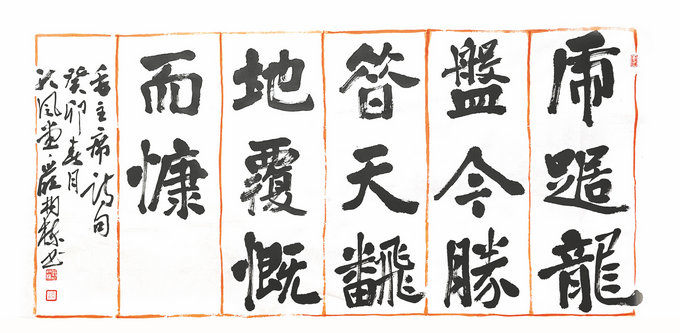 虎踞龍
盤今勝
昔天飜
地覆慨
而慷
毛主席詩句
癸卯春月
大風堂